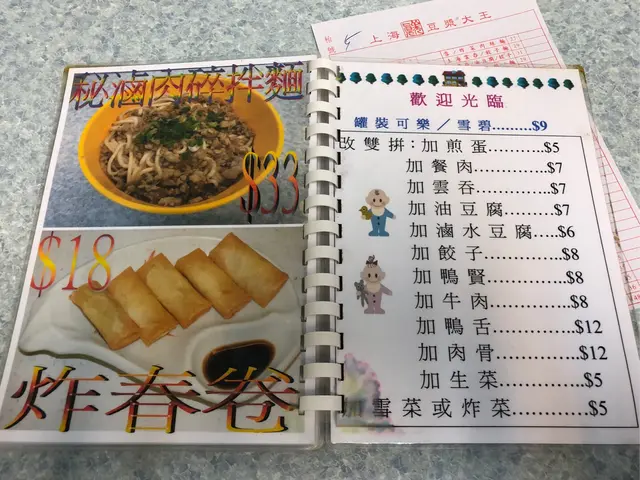 秘滷肉碎拌麵
$33
$18
炸春卷
歡迎光臨
罐裝可樂／雪碧.........$9
改雙拼：加煎蛋..............$5
加餐肉...................$7
加雲吞...................$7
加油豆腐................$7
加滷水豆腐............$6
加餃子...................$8
加鴨腎...................$8
加牛肉...................$8
加鴨舌...................$12
加肉骨...................$12
加生菜...................$5
加雪菜或炸菜................$5
5
上海豆漿大王